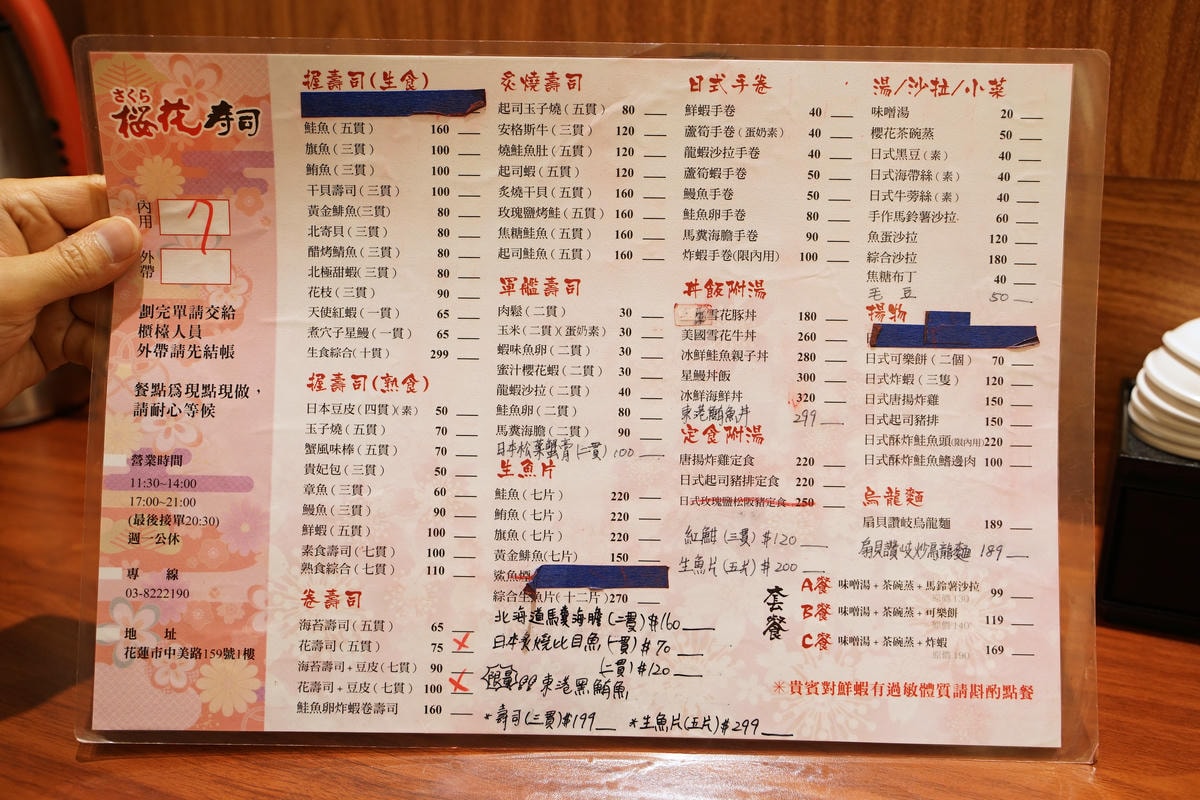 さくら
櫻花寿司
內用
7
外帶
劃完單請交給
櫃檯人員
外帶請先結帳
餐點為現點現做，
請耐心等候
營業時間
11:30~14:00
17:00~21:00
(最後接單20:30)
週一公休
專 線
03-8222190
地 址
花蓮市中美路159號1樓
握壽司(生食)
鮭魚(五貫) 160
旗魚(三貫) 100
鮪魚(三貫) 100
干貝壽司(三貫) 100
黃金鯡魚(三貫) 80
北寄貝(三貫) 80
醋烤鯖魚(三貫) 80
北極甜蝦(三貫) 80
花枝(三貫) 90
天使紅蝦(一貫) 65
煮穴子星鰻(一貫) 65
生食綜合(十貫) 299
握壽司(熟食)
日本豆皮(四貫)(素) 50
玉子燒(五貫) 70
蟹風味棒(五貫) 70
貴妃包(三貫) 50
章魚(三貫) 60
鰻魚(三貫) 90
鮮蝦(五貫) 100
素食壽司(七貫) 100
熟食綜合(七貫) 110
卷壽司
海苔壽司(五貫) 65
花壽司(五貫) 75
海苔壽司+豆皮(七貫) 90
花壽司+豆皮(七貫) 100
鮭魚卵炸蝦卷壽司 160
炙燒壽司
起司玉子燒(五貫) 80
安格斯牛(三貫) 120
燒鮭魚肚(五貫) 120
起司蝦(五貫) 120
炙燒干貝(五貫) 160
玫瑰鹽烤鮭(五貫) 160
焦糖鮭魚(五貫) 160
起司鮭魚(五貫) 160
軍艦壽司
肉鬆(二貫) 30
玉米(二貫)(蛋奶素) 30
蝦味魚卵(二貫) 30
蜜汁櫻花蝦(二貫) 30
龍蝦沙拉(二貫) 40
鮭魚卵(二貫) 80
馬糞海膽(二貫) 90
日本松葉蟹膏(二貫) 100
生魚片
鮭魚(七片) 220
鮪魚(七片) 220
旗魚(七片) 220
黃金鯡魚(七片) 150
鯊魚煙
綜合生魚片(十二片) 270
北海道馬糞海膽(二貫)$160
日本炙燒比目魚(一貫)$70
(二貫)$120
限量99東港黑鮪魚
*壽司(三貫)$199 *生魚片(五片)$299
日式手卷
鮮蝦手卷 40
蘆筍手卷(蛋奶素) 40
龍蝦沙拉手卷 40
蘆筍蝦手卷 50
鰻魚手卷 50
鮭魚卵手卷 80
馬糞海膽手卷 90
炸蝦手卷(限內用) 100
丼飯附湯
雪花豚丼 180
美國雪花牛丼 260
冰鮮鮭魚親子丼 280
星鰻丼飯 300
冰鮮海鮮丼 320
東港鮪魚丼 299
定食附湯
唐揚炸雞定食 220
日式起司豬排定食 220
日式玫瑰鹽松阪豬定食 250
紅魽(三貫)$120
生魚片(五片)$200
湯/沙拉/小菜
味噌湯 20
櫻花茶碗蒸 50
日式黑豆(素) 40
日式海帶絲(素) 40
日式牛蒡絲(素) 40
手作馬鈴薯沙拉 60
魚蛋沙拉 120
綜合沙拉 180
焦糖布丁 40
毛豆 50
揚物
日式可樂餅(二個) 70
日式炸蝦(三隻) 120
日式唐揚炸雞 150
日式起司豬排 150
日式酥炸鮭魚頭(限內用) 220
日式酥炸鮭魚鰭邊肉 100
烏龍麵
扇貝讚岐烏龍麵 189
扇貝讚岐炒烏龍麵 189
套餐
A餐 味噌湯+茶碗蒸+馬鈴薯沙拉 99
原價130
B餐 味噌湯+茶碗蒸+可樂餅 119
原價140
C餐 味噌湯+茶碗蒸+炸蝦 169
原價190
※貴賓對鮮蝦有過敏體質請斟酌點餐